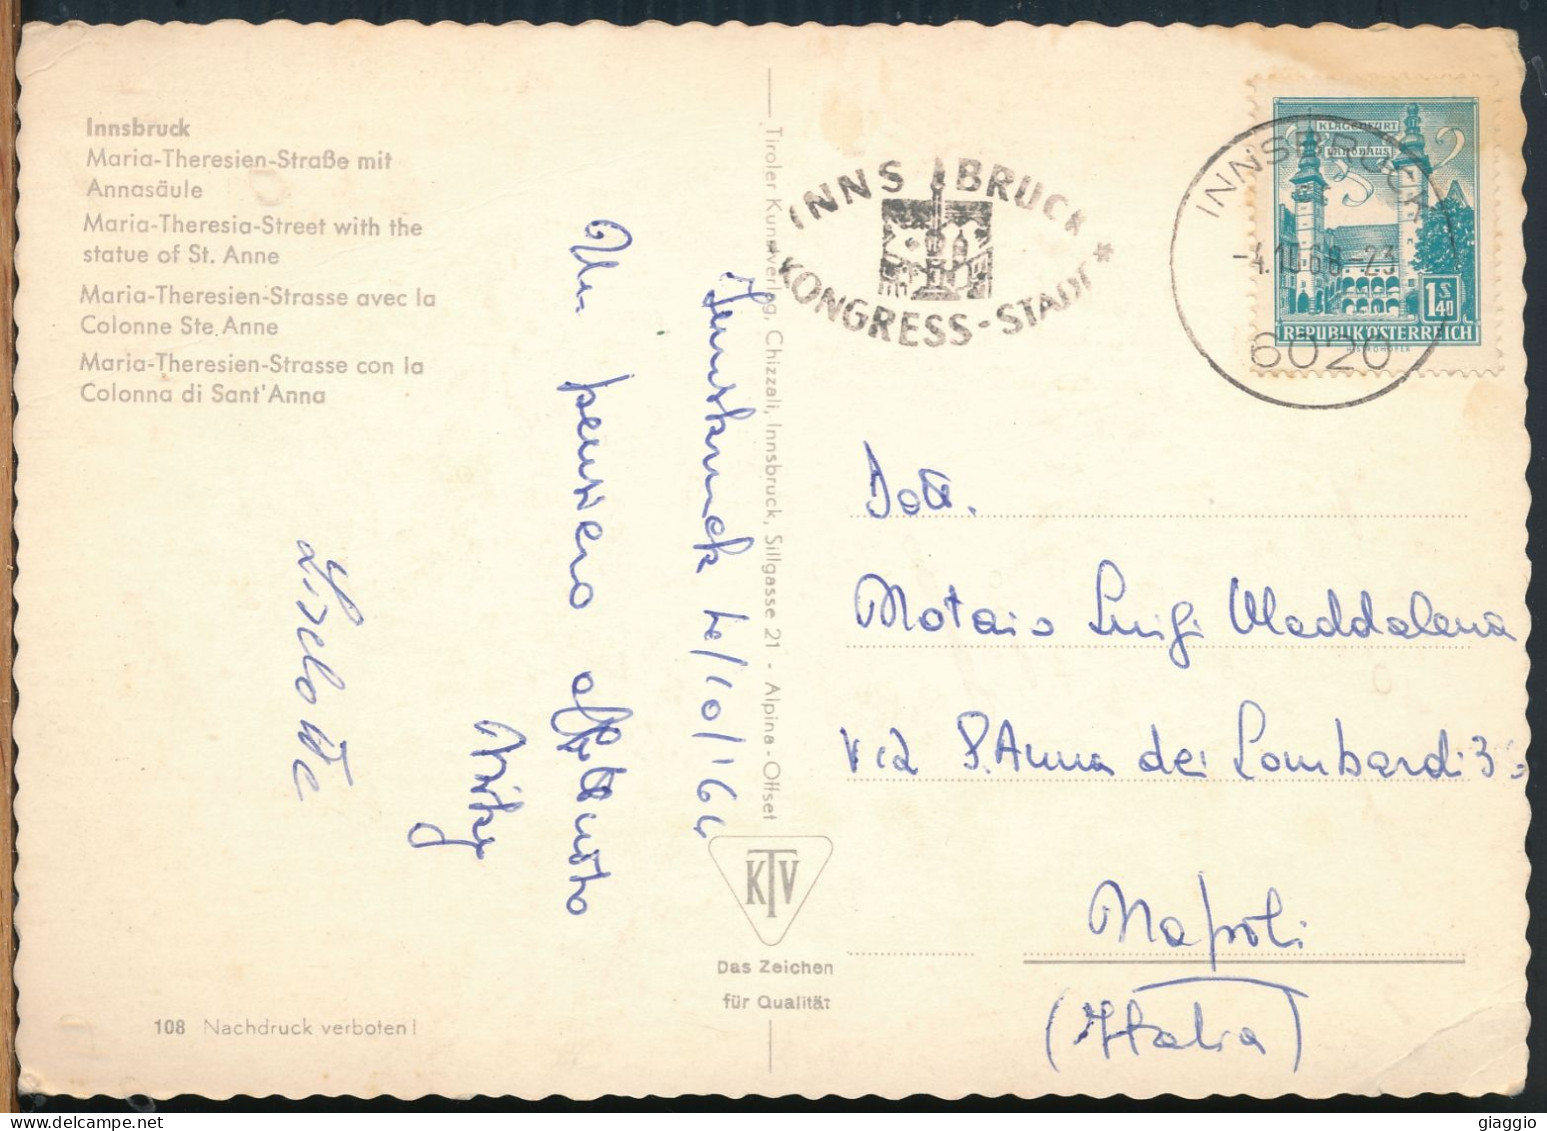 Innsbruck
Maria-Theresien-Straße mit
Annasäule
Maria-Theresia-Street with the
statue of St. Anne
Maria-Theresien-Strasse avec la
Colonne Ste. Anne
Maria-Theresien-Strasse con la
Colonna di Sant'Anna
Innsbruck
Un pensiero affettuoso
Liselotte
108 Nachdruck verboten!
Tiroler Kunstverlag, Chizzali, Innsbruck, Sillgasse 21 - Alpina-Offset
KTV
Das Zeichen
für Qualität
INNSBRUCK
* KONGRESS-STADT *
INNSBRUCK
-4.10.66-23
6020
KLAGENFURT
LANDHAUS
1 S 40
REPUBLIK ÖSTERREICH
Dott.
Notaio Luigi Maddalena
Via S. Anna dei Lombardi 3
Napoli
(Italia)
giaggio